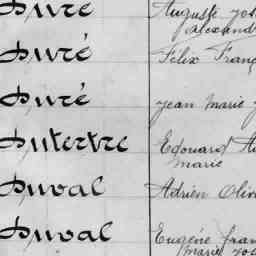 Duré Auguste
Alexandre
Duré Félix Franç
Duré Jean Marie
Dutertre Edouard
Marie
Duval Adrien Oliv
Duval Eugène Fran
Marie